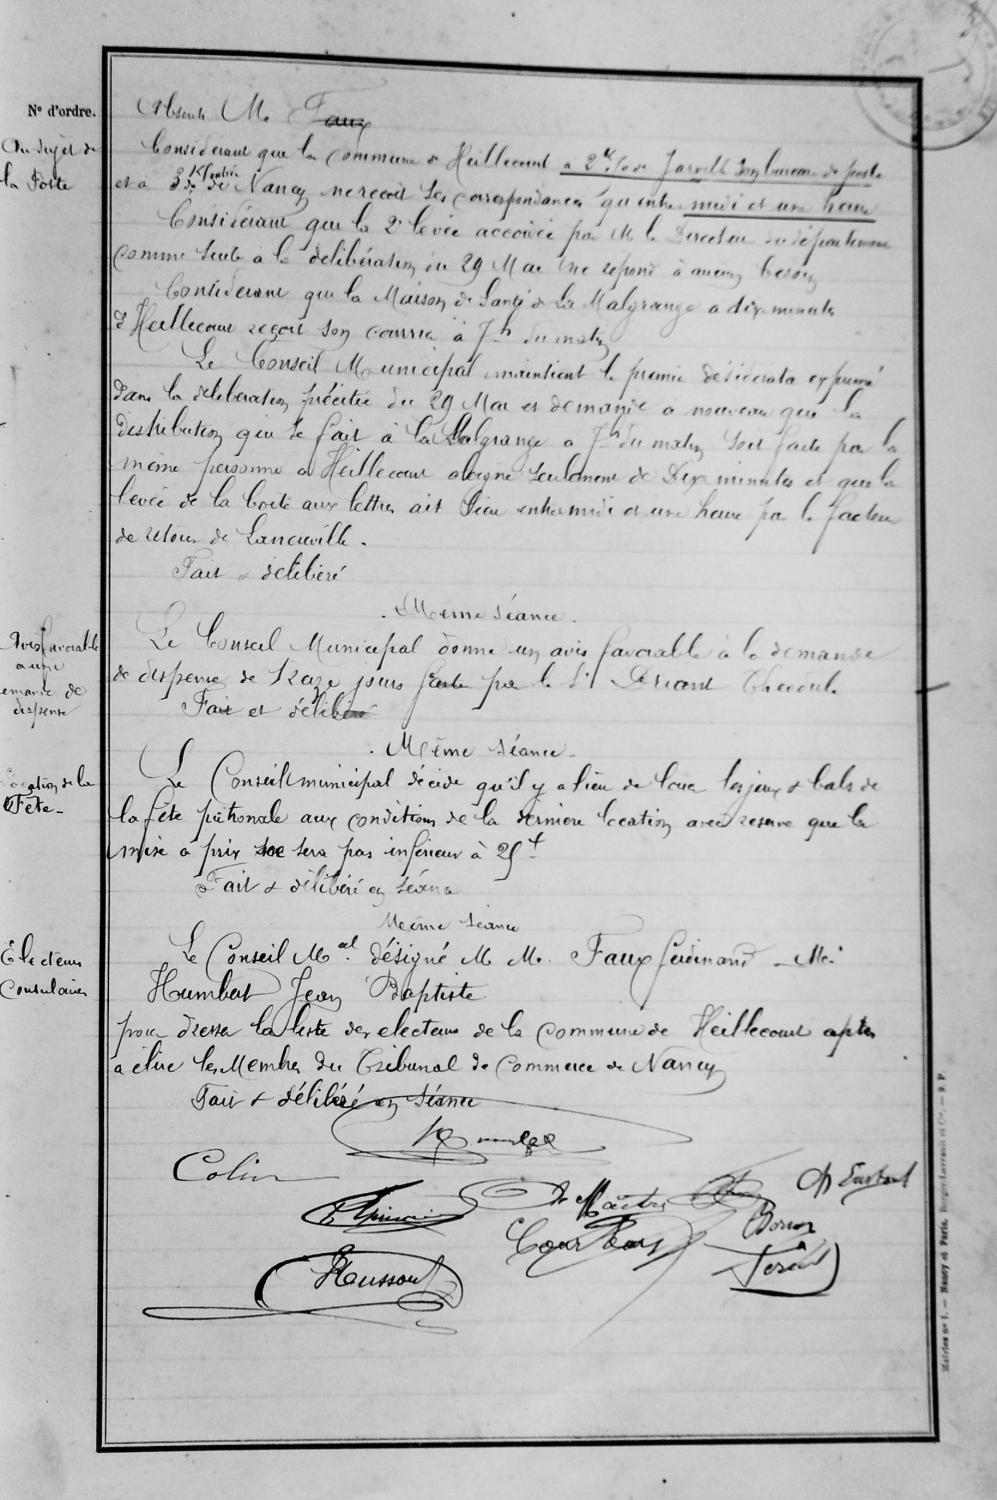 N° d'ordre.
Absents M. Faux
Au sujet de
la Poste
Considerant que la commune d'Heillecourt a 2 K. de Jarville son bureau de poste
et a 3 K de de Nancy ne recoit ses correspondances qu'entre midi et une heure
Considérant que la 2e levée accordée par M. le Directeur du département
comme suite à la délibération du 29 Mai ne répond à aucun besoin
Considerant que la Maison de Santé de la Malgrange a dix minutes
d'Heillecourt reçoit son courrier à 7h du matin
Le Conseil Municipal maintient le premier désidérata exprimé
dans la délibération précitée du 29 Mai et demande à nouveau que la
distribution qui se fait à la Malgrange a 7h du matin soit faite par la
même personne a Heillecourt eloigné seulement de Dix minutes et que la
levée de la boite aux lettres ait lieu entre midi et une heure par le facteur
de retour de Laneuville.
Fait & délibéré
Même séance.
Avis favorable
a une
demande de
dispense
Le Conseil Municipal donne un avis favorable à la demande
de dispense de treize jours faite par le Sr
Fait et délibéré
Même séance
Location de la
Fête
Le Conseil municipal décide qu'il y a lieu de louer les jeux & bals de
la fête patronale aux conditions de la dernière location avec reserve que la
mise à prix ne sera pas inférieur à 25f
Fait & délibéré en séance
Même séance
Electeurs
Consulaires
Le Conseil Mal désigné M M. Faux Ferdinand - M.
Humbert Jean Baptiste
pour dresser la liste des electeurs de la commune de Heillecourt aptes
a élire les Membres du Tribunal de Commerce de Nancy
Fait & délibéré en séance
Colin
Houssout
Mairies n° 1. — Nancy et Paris, Berger-Levrault et Cie. — 9. P.